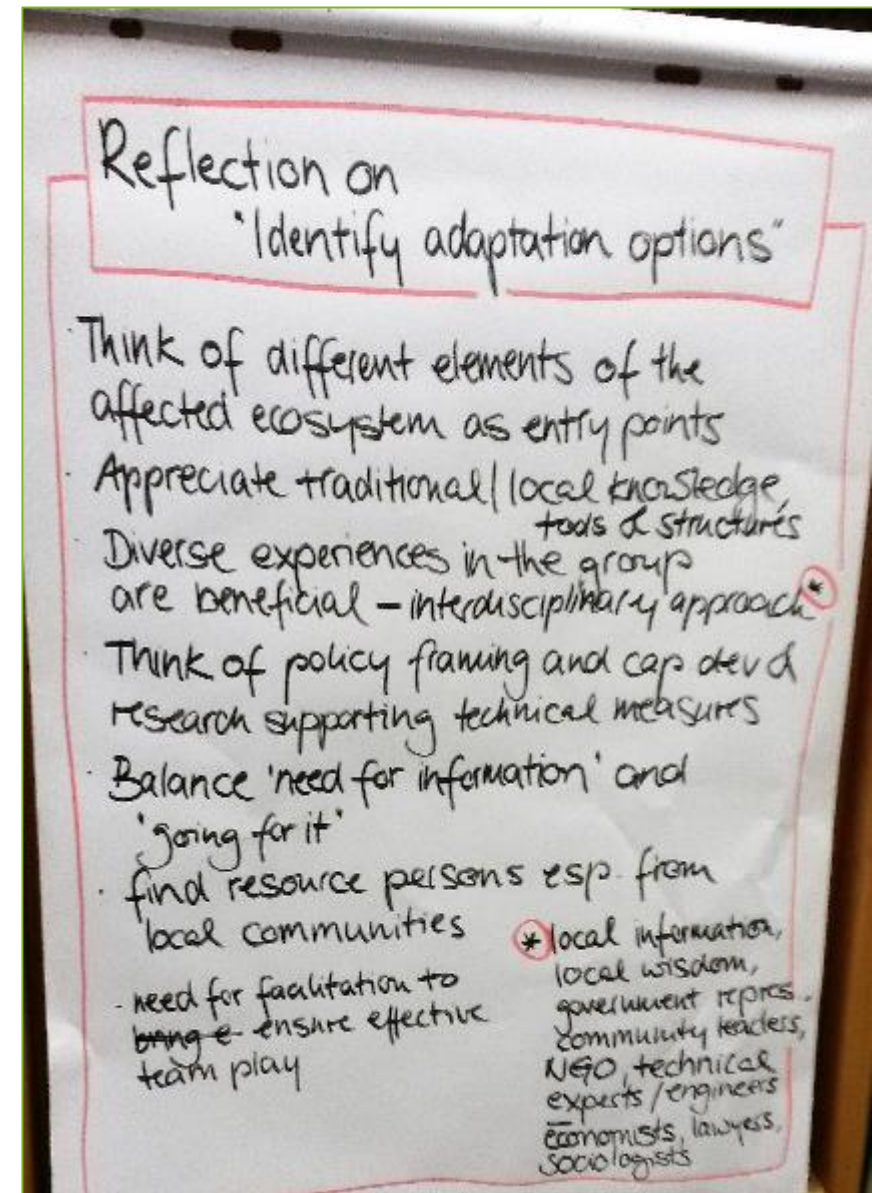 Reflection on
"Identify adaptation options"
· Think of different elements of the
affected ecosystem as entry points
· Appreciate traditional/local knowledge,
tools & structures
Diverse experiences in the group
are beneficial – interdisciplinary approach *
· Think of policy framing and cap dev &
research supporting technical measures
· Balance 'need for information' and
'going for it'
· find resource persons esp. from
local communities
· need for facilitation to
bring e ensure effective
team play
* local information,
local wisdom,
government repres.
community leaders,
NGO, technical
experts/engineers
economists, lawyers,
sociologists